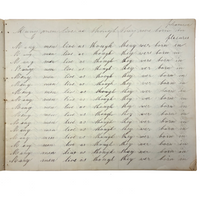 Many men live as though they wer born
Many men live as though they wer born in
Many men live as though they wer born in
Many men live as though they wer born in
Many men live as though they wer born in
Many men live as though they wer born in
Many men live as though they wer born in
Many men live as though they wer born in
Many men live as though they wer born in
Many men live as though they wer born in
Many men live as though they wer born in
Many men live as though they wer born in
Many men live as though they wer born in
Many men live as though they wer born in